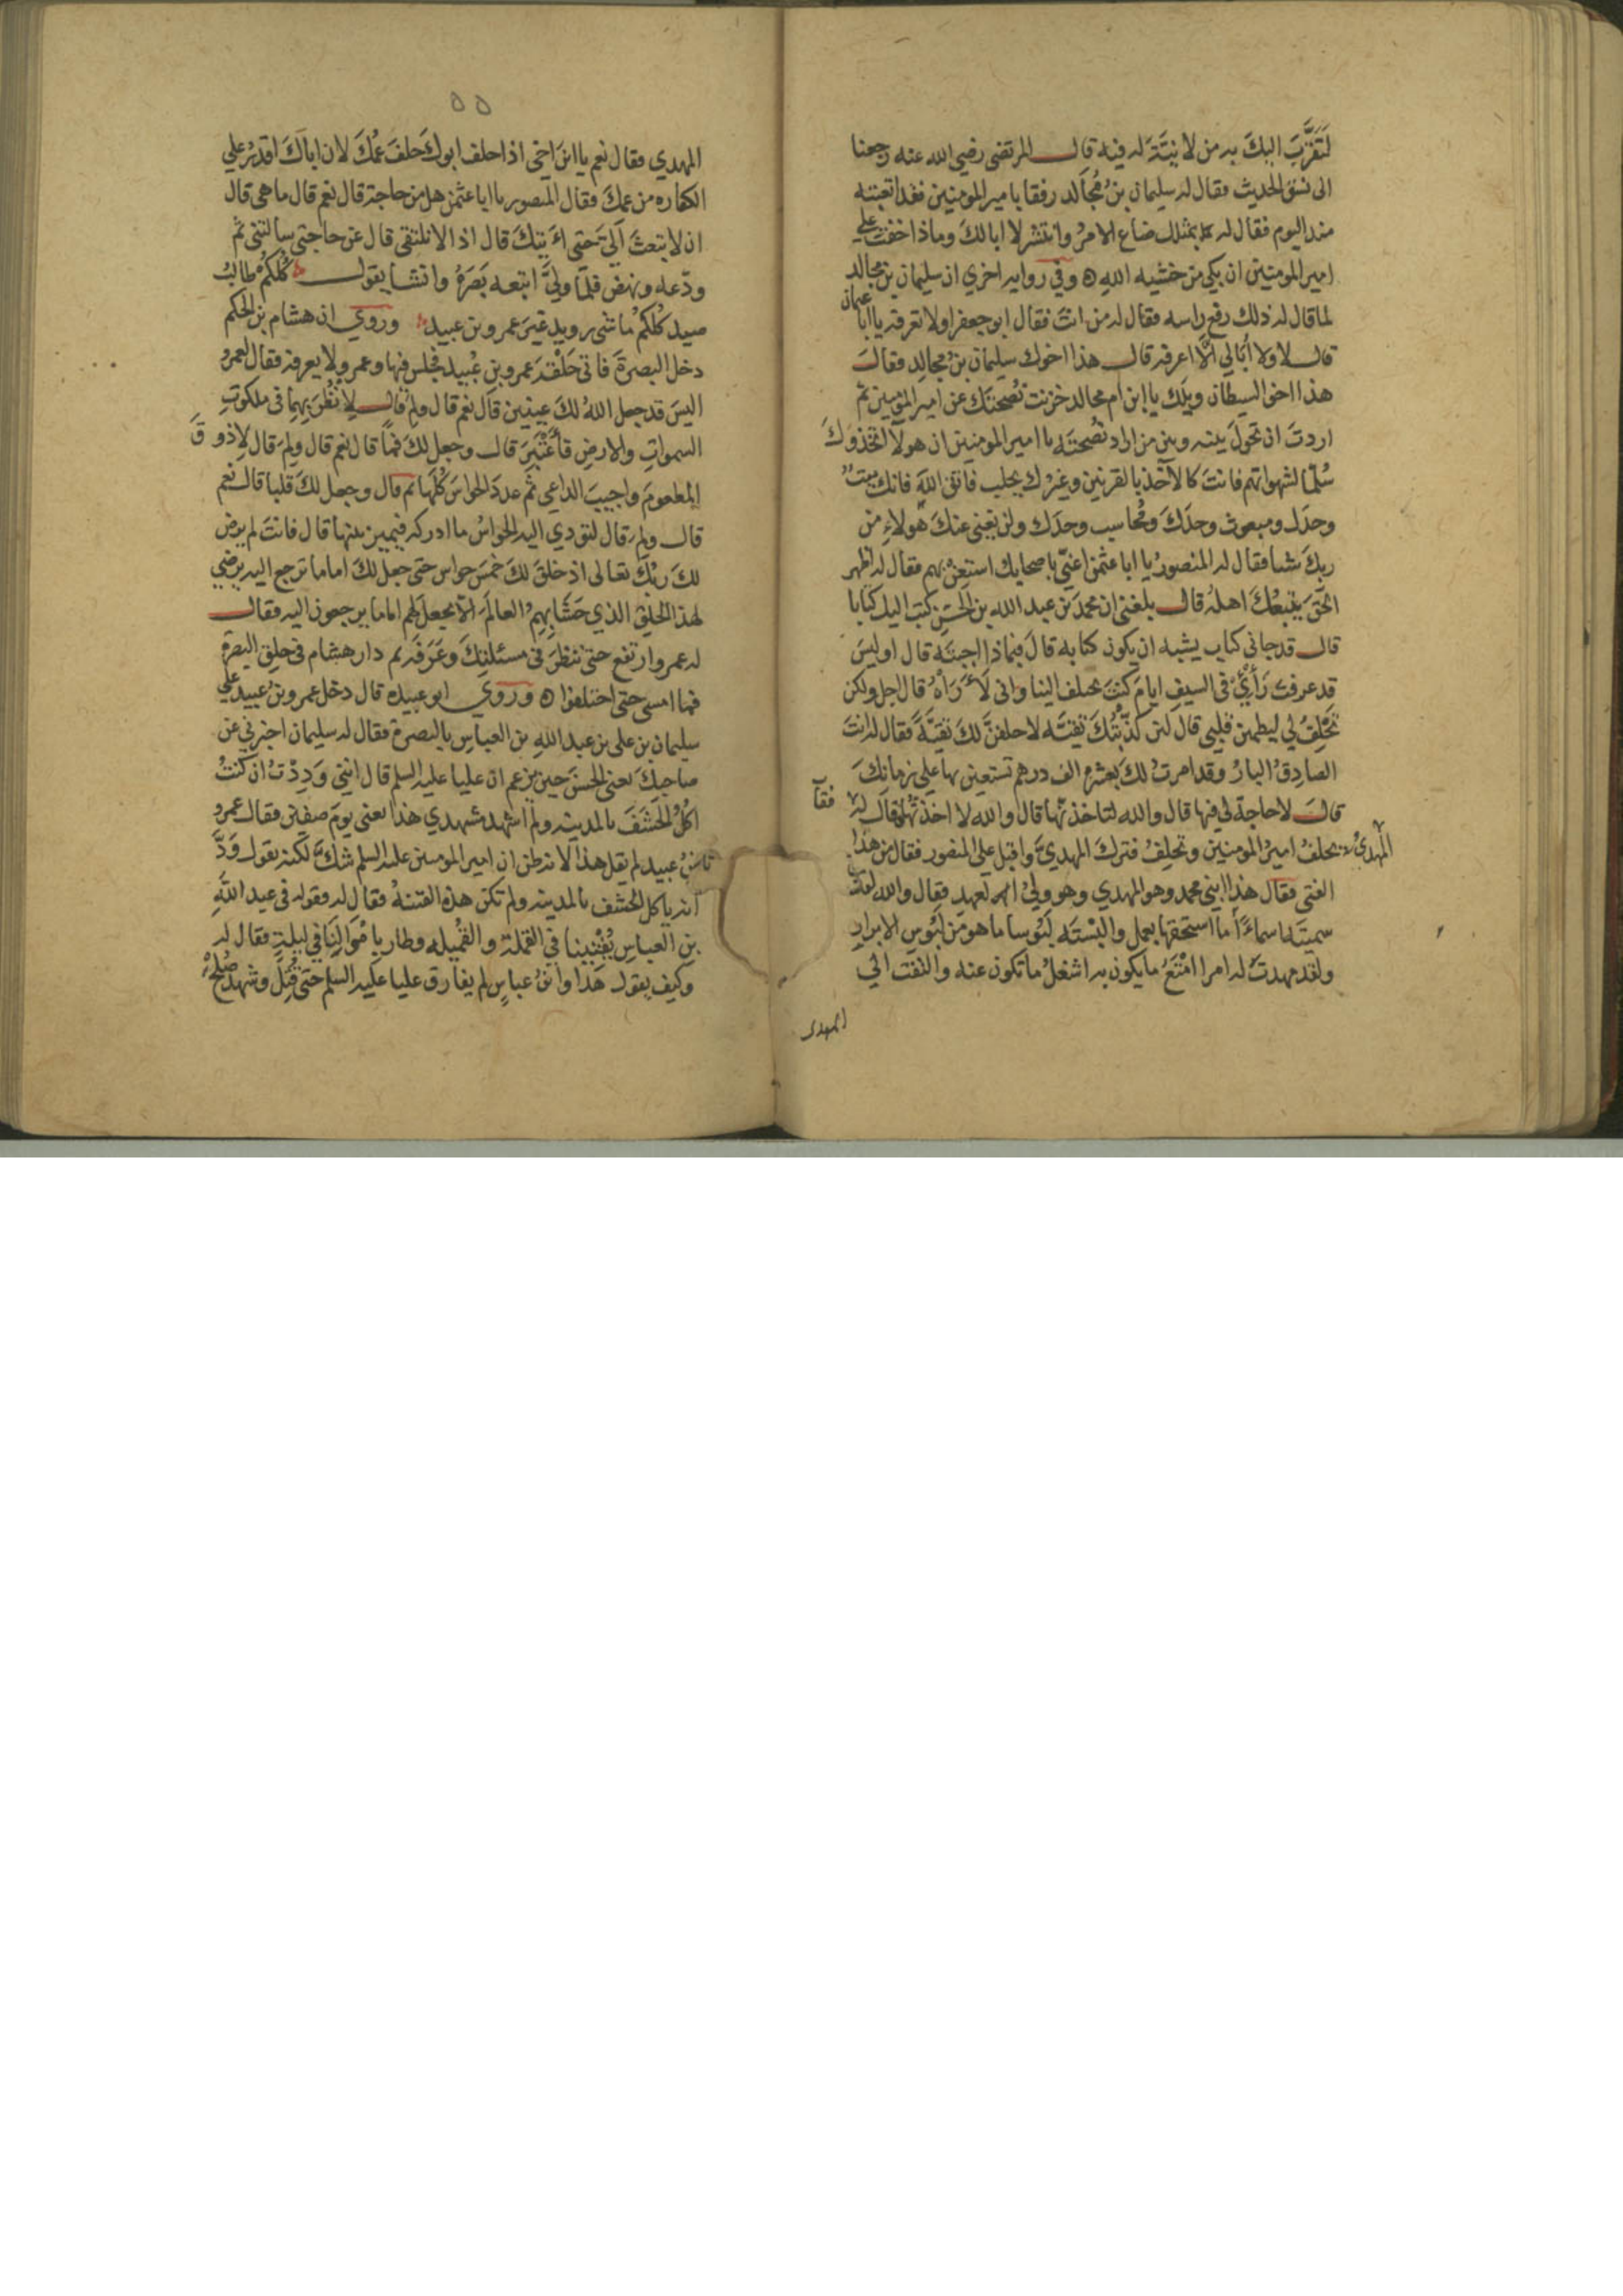 لَتَقَرَّبَ اليكَ به من لا نيَّةَ له فيه قال المرتضى رضي الله عنه رجعنا
الى نسق الحديث فقال له سليمان بنُ مُجَالد رفقا بامير المومنين فقد اتعبته
منذ اليوم فقال له بمثلك ضاع الامرُ وانتشر لا ابا لكَ وماذا خفتَ على
امير المومنين ان بكى من خشيه اللهِ ه وفي روايه اخري ان سليمان بن مجالد
لما قال له ذلك رفع راسه فقال له من انتَ فقال ابو جعفر اولا تعرفه يا ابا عثمان
قال لا ولا اُبَالي الّا اعرفه قال هذا اخوك سليمان بنُ مجالِد فقالَ
هذا اخو الشيطان ويلَك يا ابن ام مجالد خزنت نُصحتَك عن امير المومنين ثم
اردتَ ان تحولَ بينه وبين من اراد نُصحتَه يا امير المومنين ان هولآ اتخذوكَ
سُلّما لشهواتهم فانتَ كالآخذ بالقرنين وغيرُك يحلب فاتق اللهَ فانك ميتٌ
وحدَك ومبعوث وحدَكَ ومُحاسب وحدَك ولن يغني عنكَ هَولاءِ من
ربكَ شيا فقال له المنصورُ يا ابا عثمن اعنّي باصحابك استعِنْ بهم فقال له اظهر
الحقَّ يتبعُكَ اهلُه قال بلغني ان محمدَ بنَ عبد الله بن الحسَنِ كتب اليك كتابا
قال قد جاني كتاب يشبه ان يكون كتابه قالَ فبماذا اجبتَه قال اوليسَ
قد عرفتَ رَأْيِيْ في السيفِ ايامَ كنتَ تختلف الينا واني لَا أرَاهُ قال اجل ولكن
تَحْلِفُ لي ليطمين قلبي قال لئن كَذَّبْتُكَ تقيَّه لاحلفنَّ لكَ تقيَّةً فقال له انتَ
الصادِقُ البارُ وقد امرتُ لكَ بعشره الف درهم تستعين بها على زمانِكَ
قالَ لا حاجة لي فيها قال والله لتاخذنّها قال والله لا اخذتُها فقال له
المهديُّ يحلفُ اميرُ المومنين وتحلِفُ فتركَ المهديَّ واقبل على المنصور فقال من هذا
الفتى فقال هذا ابني محمد وهو المهدي وهو وليُّ العهد فقال والله لقد
سميتَه اسماءً ما استحقها بعمل والبسْتَه لَبُوسا ما هو من لَبُوسِ الابرارِ
ولقد مهدتَ له امرا امْتَعُ ما يكون به اشغلُ ما تكون عنه والتفت الي
المهدي
٥٥
المهدي فقال نعم يا ابنَ اخي اذا حلف ابوكَ حلفَ عمُّكَ لان اباكَ اقدرُ على
الكفاره من عمكَ فقال المنصور يا ابا عثمن هل من حاجة قال نعم قال ما هي قال
ان لا تبعثَ اليَّ حتي آتيَكَ قال اذا لا نلتقي قال عن حاجتي سالتني ثم
ودّعه ونهض فلمّا ولّيَ اتبعه بَصَرَهُ وانشا يقول كُلكمْ طالبُ
صيد كُلكمُ ماشي رويد غيرَ عمرو بن عبيد وروي ان هشام بن الحكم
دخل البصرةَ فاتى حَلْقةَ عمرو بنِ عُبيد فجلس فيها وعمرو لا يعرفه فقال لعمرو
اليسَ قد جعل اللهُ لكَ عينين قال نعم قال ولِمَ قال لِاَنْظُرَ بِهِمَا في ملكوتِ
السمواتِ والارضِ فأعْتَبِرَ قال وجعل لكَ فمًا قال نعم قال ولِمَ قال لِاذوقَ
المطعومَ واجيبَ الداعي ثم عددَ الحواسَ كُلَّها ثم قال وجعل لكَ قلبا قال نعم
قال ولِمَ قال لتودي اليه الحواسُ ما ادركه فيميز بينها قال فانتَ لم يرض
لكَ ربُّكَ تعالى اذ خلقَ لكَ خمسَ حواس حتى جعل لكَ اماما ترجع اليه يرضي
لهذا الخلِقِ الذي حَشَا بِهِمُ العالَمَ الّا يجعلَ لهم اماما يرجعون اليه فقال
له عمرو ارتفع حتى ننظرَ في مسئلتِكَ وعَرَفَه ثم دار هشام في حِلقِ البصرة
فما امسى حتى اختلفوا ه وروي ابو عبيده قال دخل عمرو بنُ عبيد على
سليمان بن على بن عبد اللهِ بن العباسِ بالبصرة فقال له سليمان اخبرني عن
صاحبكَ يعنى الحسنَ حين يزعم ان عليا عليه السلم قال انني وَدِدْتُ ان كنتُ
اكُلُ الحَشَفَ بالمدينه ولم اشهد مشهدي هذا يعنى يومَ صفين فقال عمرو
بنُ عبيد لم يقل هذا لانه ظن ان امير المومنين عليه السلم شكَّ لكنه يقول وَدَّ
انه ياكل الحَشَف بالمدينه ولم تكن هذه الفتنهُ فقال له فقوله في عبد اللهِ
بنِ العباس يُفْتِيْنا في القملة والقُمَيله وطار باَمْوَالِنَا في ليلةٍ فقال له
وكيف يقول هَذَا وابنُ عباسٍ لم يفارق عليا عليه السلم حتى قُتِلَ وشهد صُلحَ